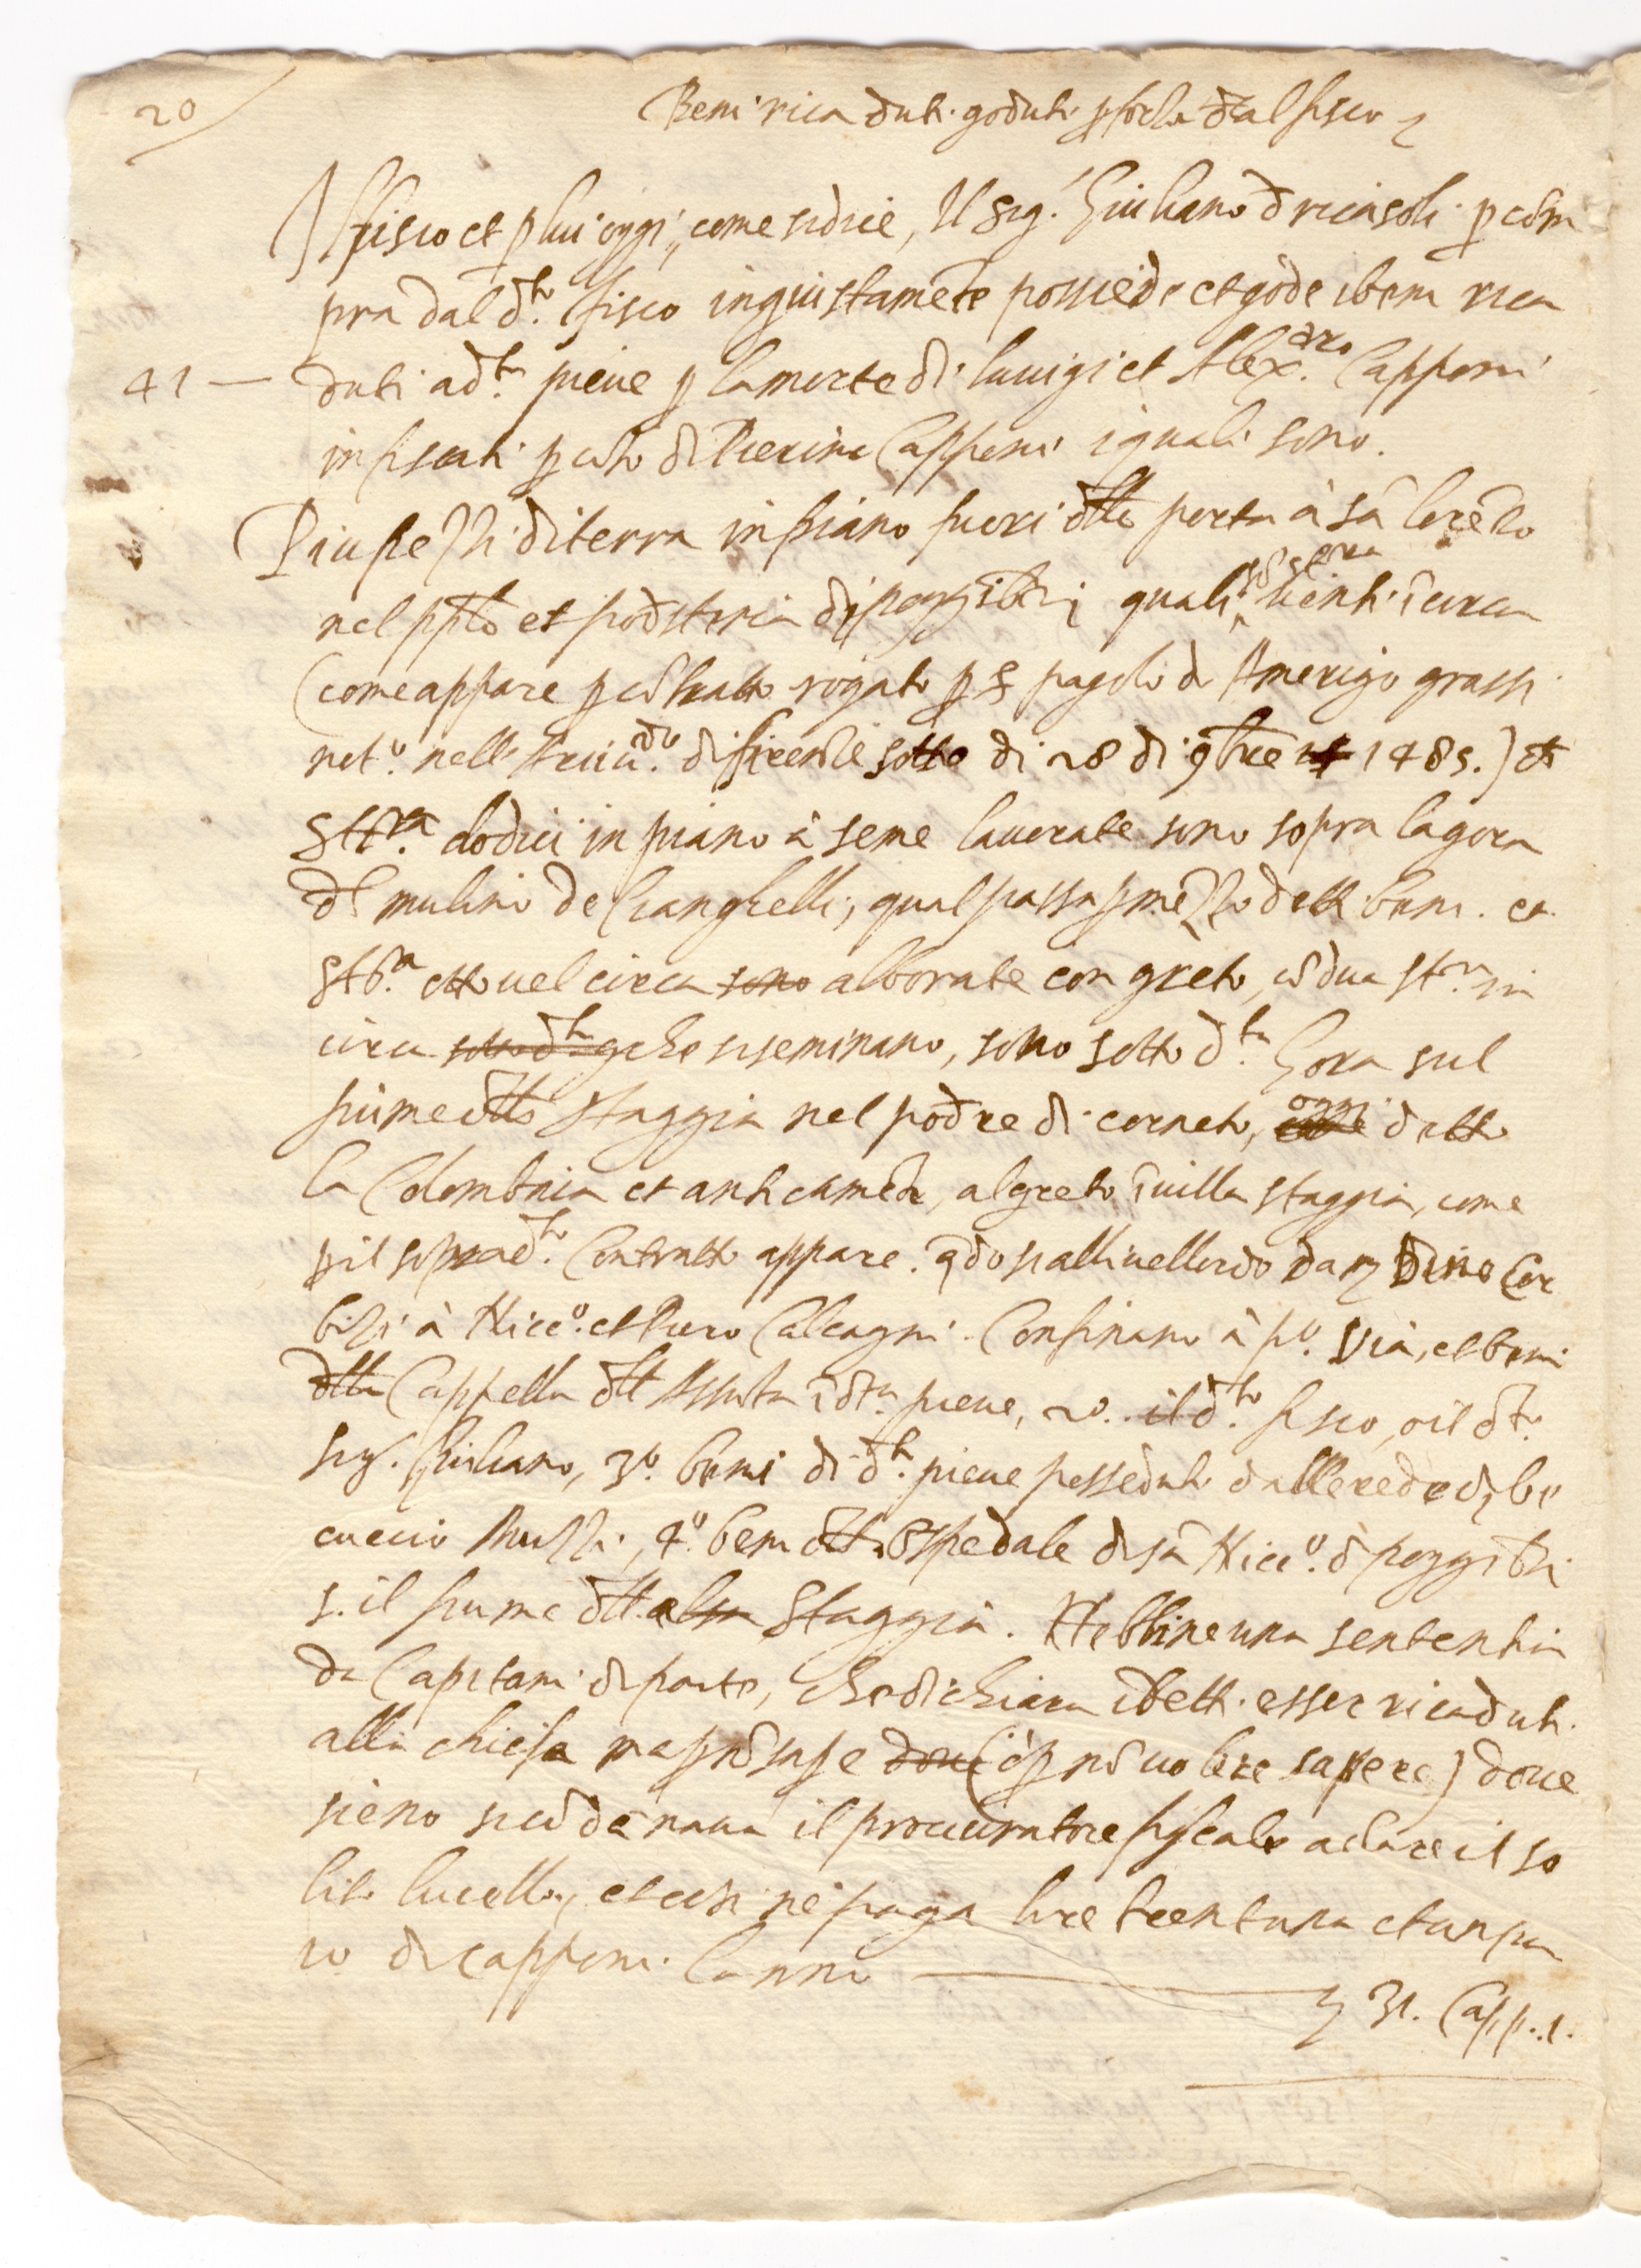 20
Beni ricaduti goduti p forza dal fisco
Il fisco et p lui oggi, come si dice, Il Sig.r Giuliano d ricasoli p com
pra dal d.to fisco ingiustamẽte possiede et gode i beni rica
41 — duti a d.ta pieve p la morte di luigi et Alex.dro Capponi
infiscati p cõto di Pierino Capponi i quali sono.
Piu pezzi di terra in piano fuori dlla porta à sã lorẽzo
nel pp.lo et podsteria di poggibõzi quali sõ stiora venti ĩ circa
(come appare p cõtratto rogato p s pagolo d Amerigo grassi
not.o nell Arciu.do di firenze sotto di 28 di 9bre 1485.) et
St.ra dodici in piano à seme lavorate sono sopra la gora
dl mulino de Cianghelli, qual passa p mezzo detti beni. et
St.ra otto vel circa sono alborate con greto, cõ dua st.ra in
circa che si seminano, sono sotto d.ta Gora sul
fiume dtto Staggia nel podre di corneto, oggi detto
la Colombaia et anticamẽte, al greto ĩ villa staggia, come
p il soprad.to Contratto appare. qdo si allivellorno da Dino Cor
bizi à Nicc.o et Piero Calcagni. Confinano à p.o via, et beni
dlla Cappella dll Assunta ĩ dta pieve, 2.o il d.to fisco, o il d.to
sig. Giuliano, 3.o beni di d.ta pieve posseduti dall erede di be
cuccio Nuzzi, 4.o beni dllo Ospedale di sã Nicc.o d poggibõzi
5. il fiume dtt.o Staggia. Hebbine una sententia
da Capitani di parte, che dichiara i detti esser ricaduti
alla chiesa ma p nõ sape dove (ò p nõ volere sapere) dove
sieno si cõdẽnava il procuratore fiscale a dare il so
lito livello, et cosi ne paga lire trentuna et un pa
io di capponi l'anno ———
31. Capp. 1.